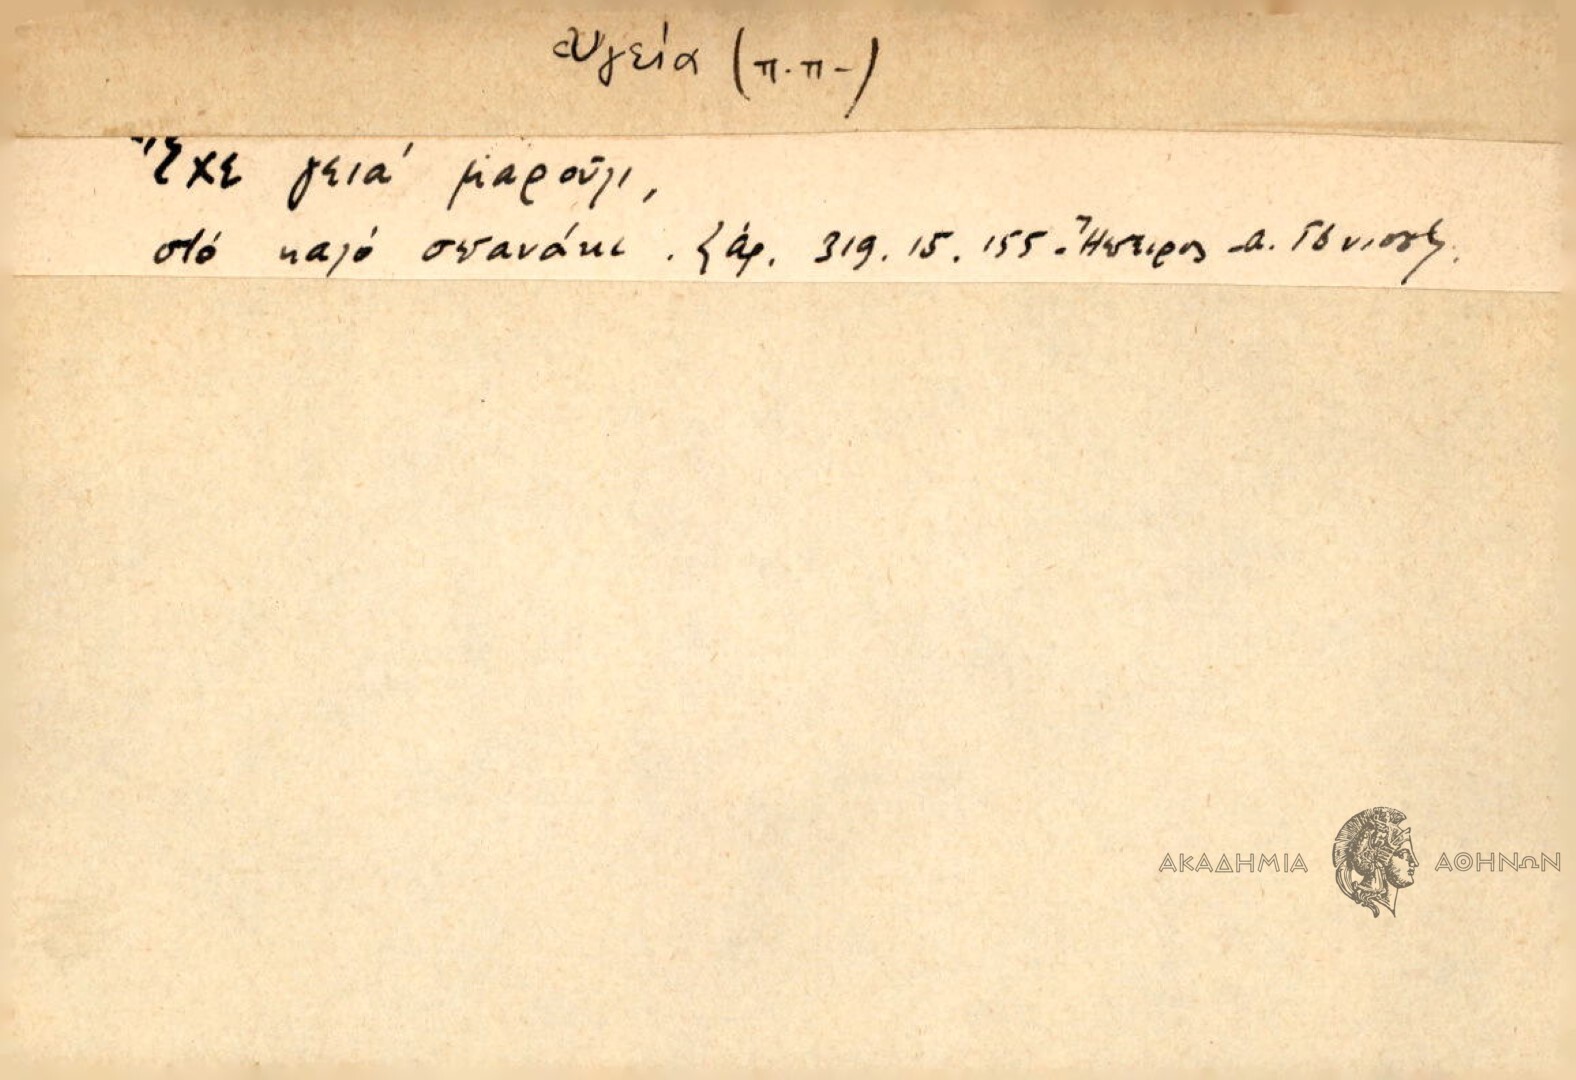 ὑγεία (π.π-)
Ἔχε γειά μαροῦλι,
στό καλό σπανάκι. ἀρ. 319. 15. 155. Ἤπειρος -Α.
ΑΚΑΔΗΜΙΑ ΑΘΗΝΩΝ